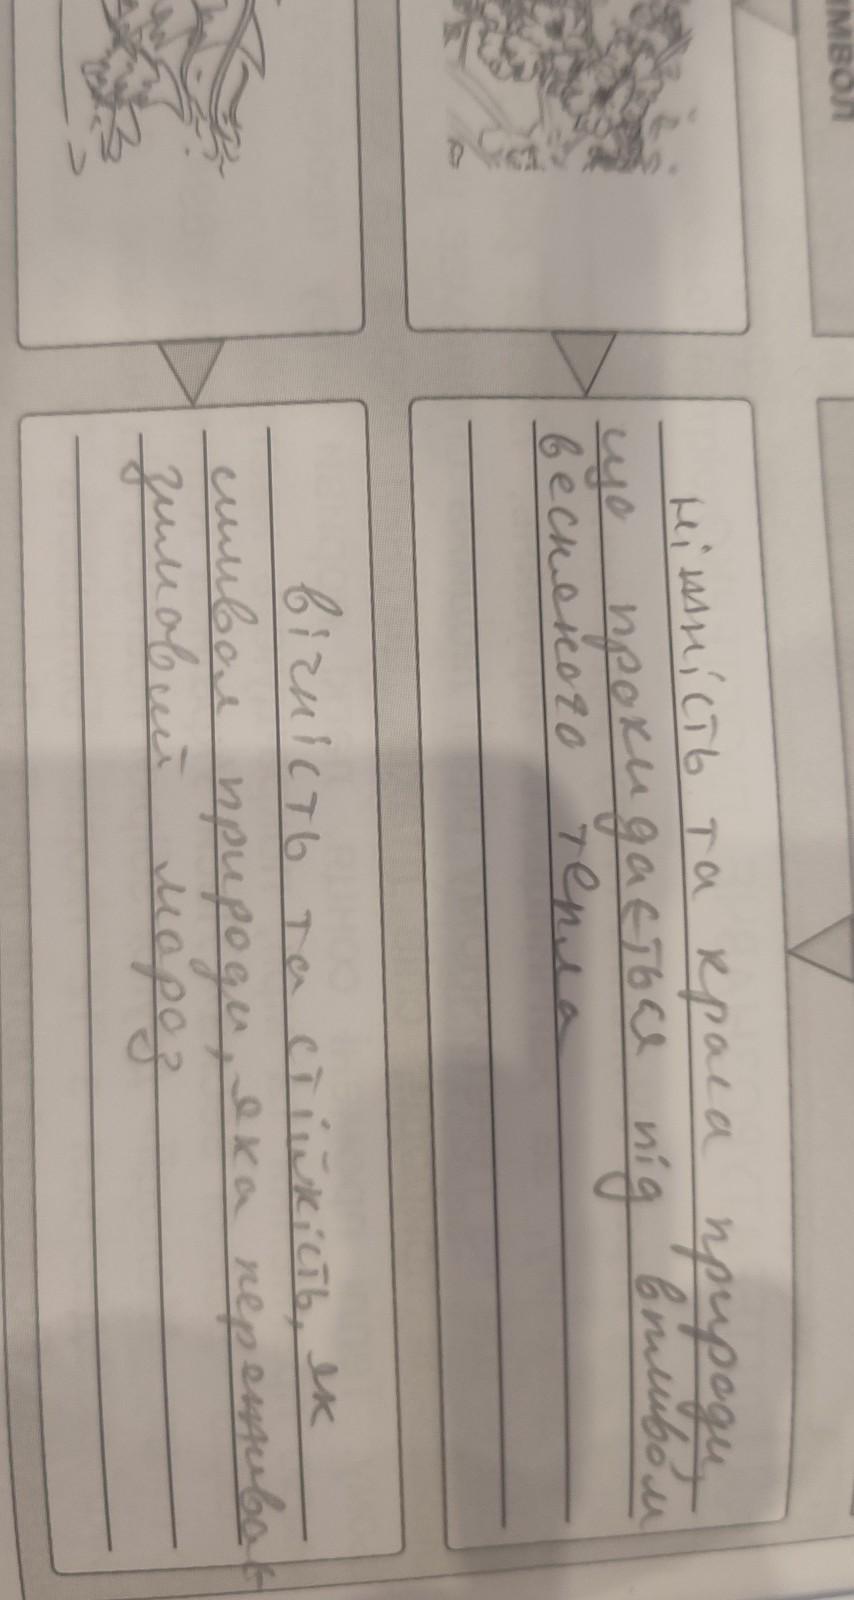 ИМВОЛ
ніжність та краса природи,
що прокидається під впливом
весняного тепла
вічність та стійкість, як
символ природи, яка переживає
зимовий мороз